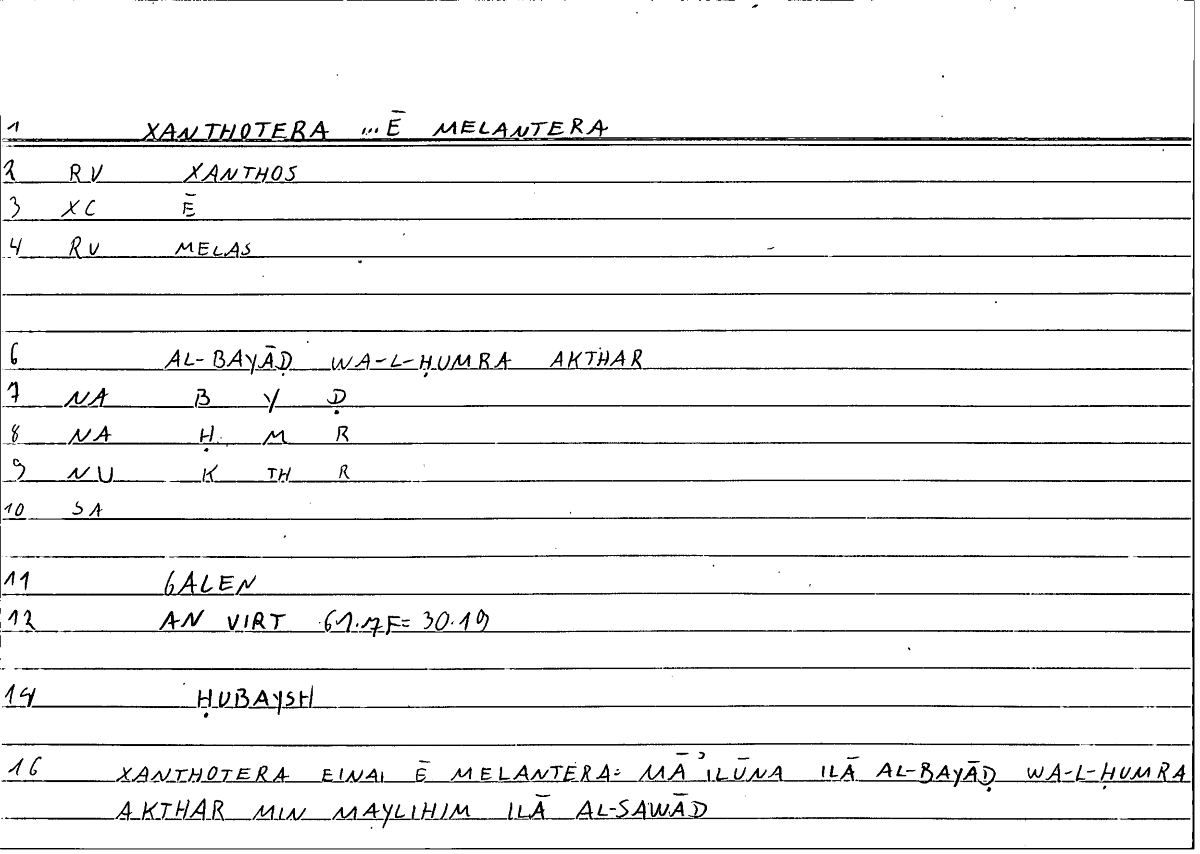 1 XANTHOTERA ... Ē MELANTERA
2 RV XANTHOS
3 XC Ē
4 RV MELAS
6 AL-BAYĀḌ WA-L-ḤUMRA AKTHAR
7 NA B Y Ḍ
8 NA Ḥ M R
9 NU K TH R
10 SA
11 GALEN
12 AN VIRT 61.17F = 30.19
14 ḤUBAYSH
16 XANTHOTERA EINAI Ē MELANTERA: MĀʾILŪNA ILĀ AL-BAYĀḌ WA-L-ḤUMRA
AKTHAR MIN MAYLIHIM ILĀ AL-SAWĀD